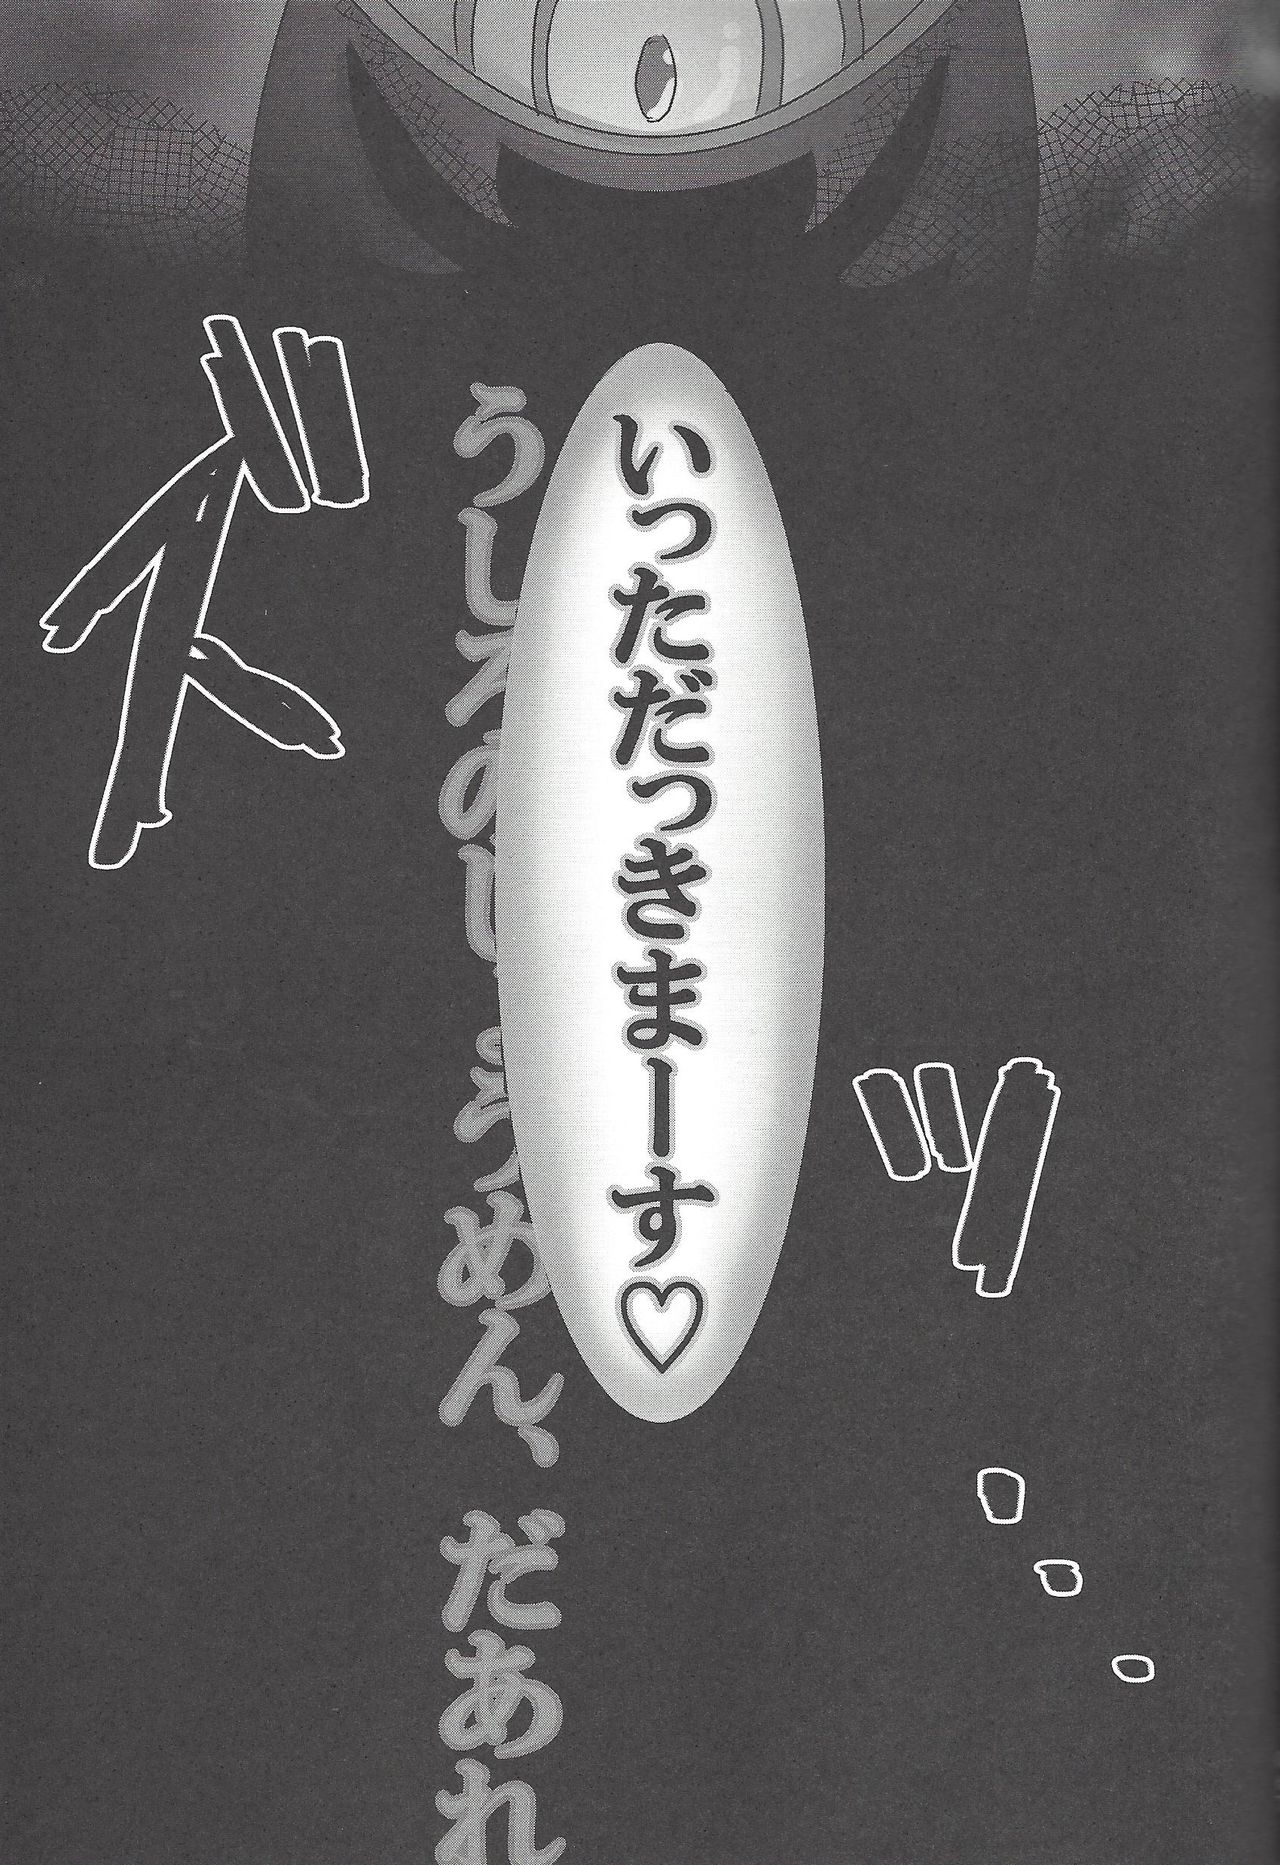 いっただだっきまーす♡
うしろのしょうめん、だあれ
ズッ